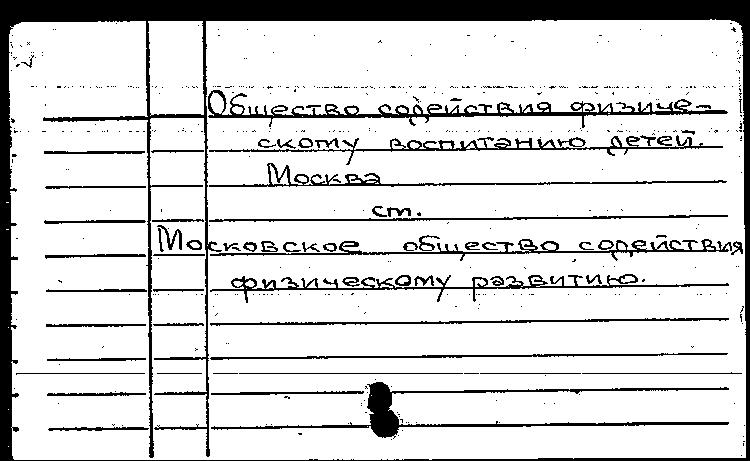 Общество содействия физиче-
скому воспитанию детей.
Москва
ст.
Московское общество содействия
физическому развитию.